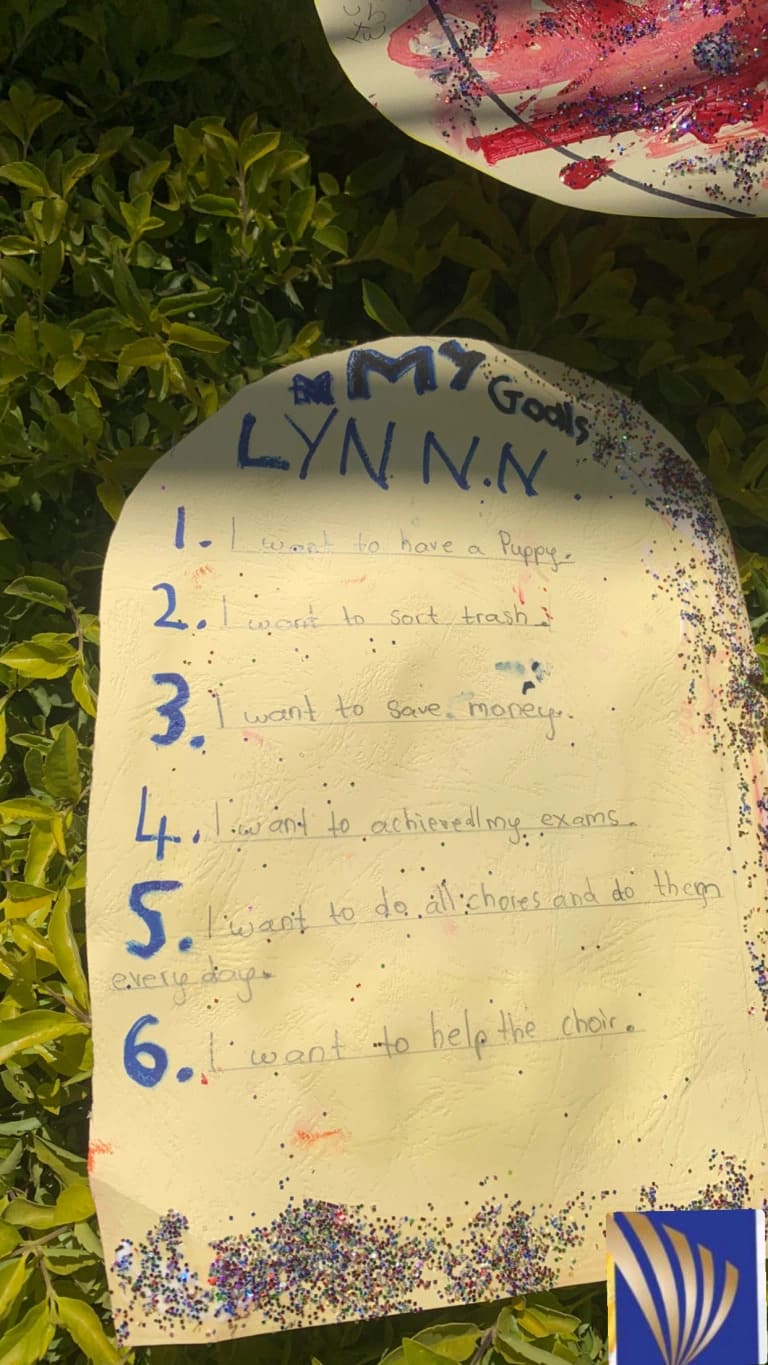 MY Goals
LYN N.N.
1. I want to have a Puppy.
2. I want to sort trash.
3. I want to save money.
4. I want to achieved my exams.
5. I want to do all chores and do them
every day.
6. I want to help the choir.